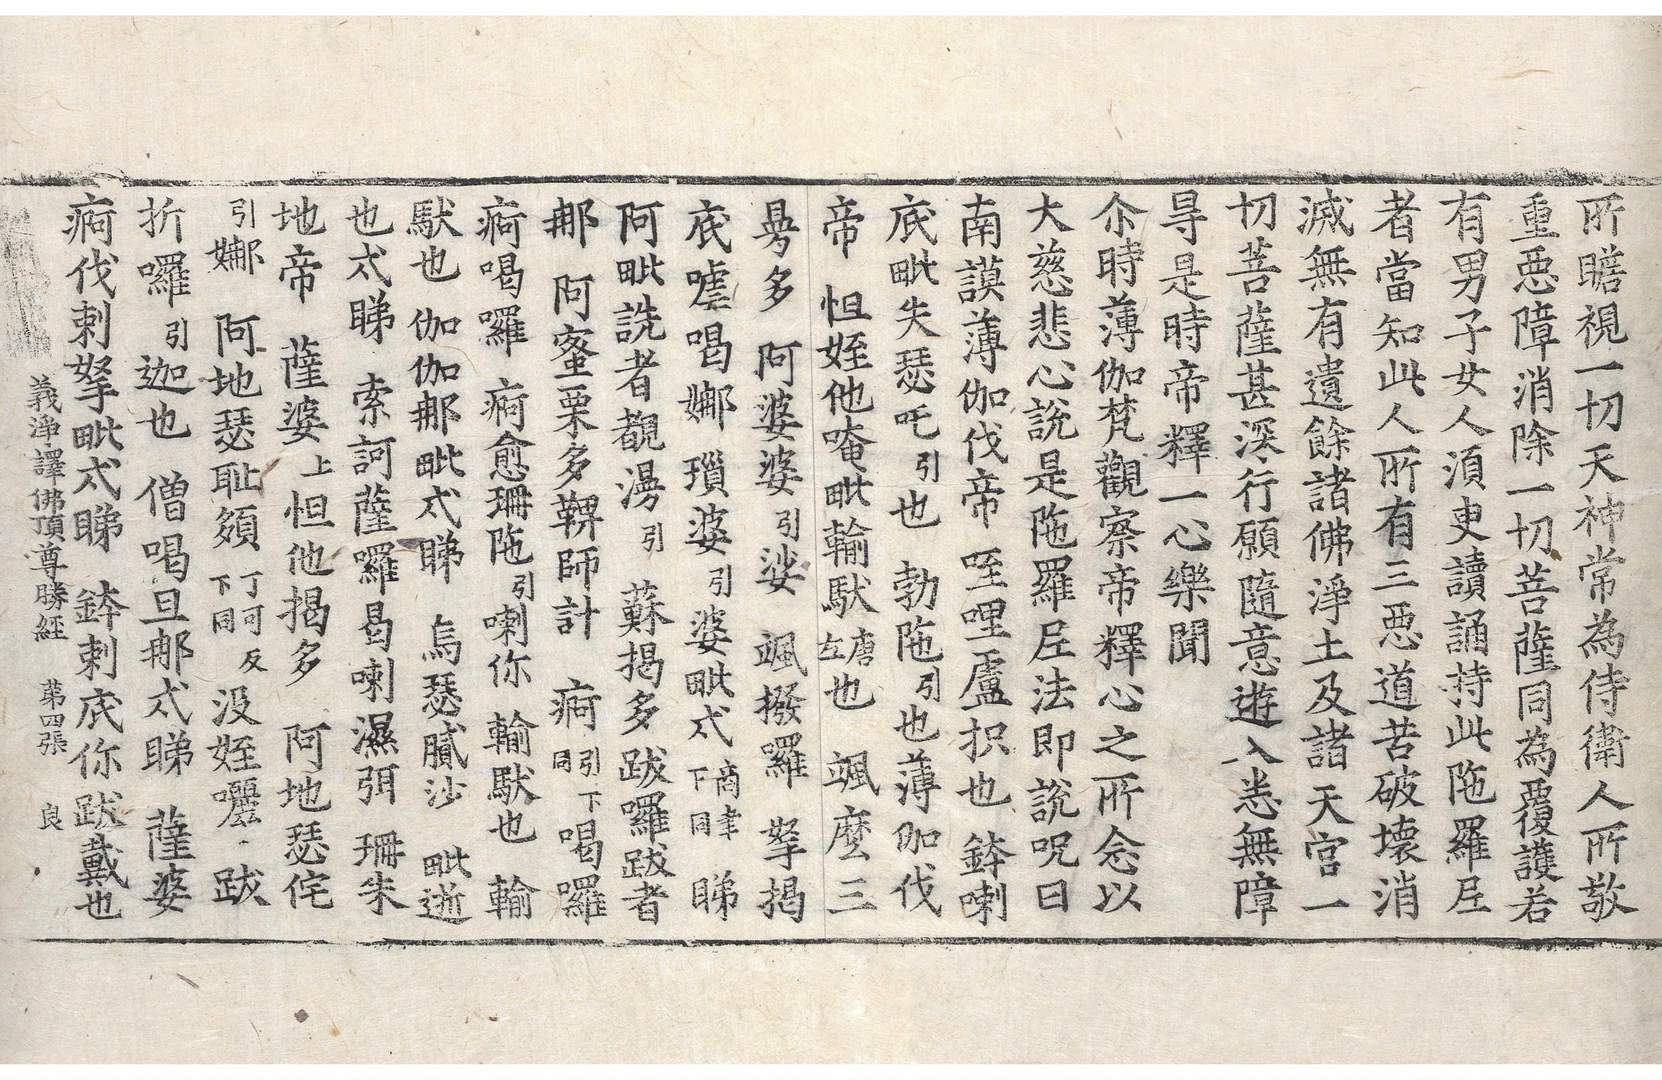 所瞻視一切天神常為侍衛人所敬
重惡障消除一切菩薩同為覆護若
有男子女人須臾讀誦持此陁羅尼
者當知此人所有三惡道苦破壞消
滅無有遺餘諸佛淨土及諸天宮一
切菩薩甚深行願隨意遊入悉無障
㝵是時帝釋一心樂聞
尒時薄伽梵觀察帝釋心之所念以
大慈悲心說是陁羅尼法即說呪曰
南謨薄伽伐帝 咥哩盧枳也 鉢喇
底毗失瑟吒引也 勃陁引也薄伽伐
帝 怛姪他唵毗輸馱唐左也 颯麼三
曼多 阿婆婆引娑 颯撥羅 拏揭
底嘘喝娜 瑣婆引婆毗弍商聿下同 睇
阿毗詵者覩漫引 蘇揭多跋囉跋者
那 阿蜜栗多鞞師計 痾引下同喝囉
痾喝囉 痾愈珊陁引喇你 輸馱也 輸
馱也 伽伽那毗弍睇 烏瑟膩沙 毗逝
也弍睇 索訶薩囉曷喇濕弭 珊朱
地帝 薩婆上怛他揭多 阿地瑟侘
引娜 阿地瑟耻頞丁可反下同 沒姪囇 跋
折囉引迦也 僧喝旦那弍睇 薩婆
痾伐剌拏毗弍睇 鉢剌底你跋戴也
義淨譯佛頂尊勝經 第四張 良